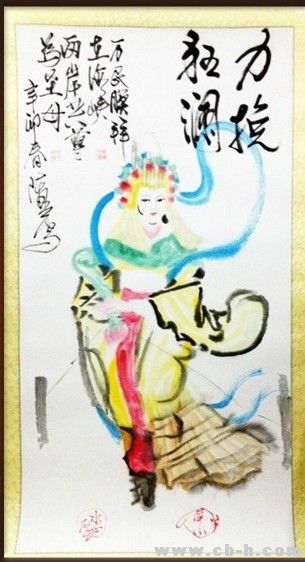 力挽
狂澜
万民膜拜
立海峡
两岸共尊
为圣母
辛卯春 写
www.cb-h.com